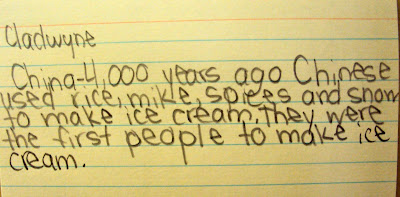 Cladwyne
China-4,000 years ago Chinese
used rice, milke, spices and snow
to make ice cream. they were
the first people to make ice
cream.